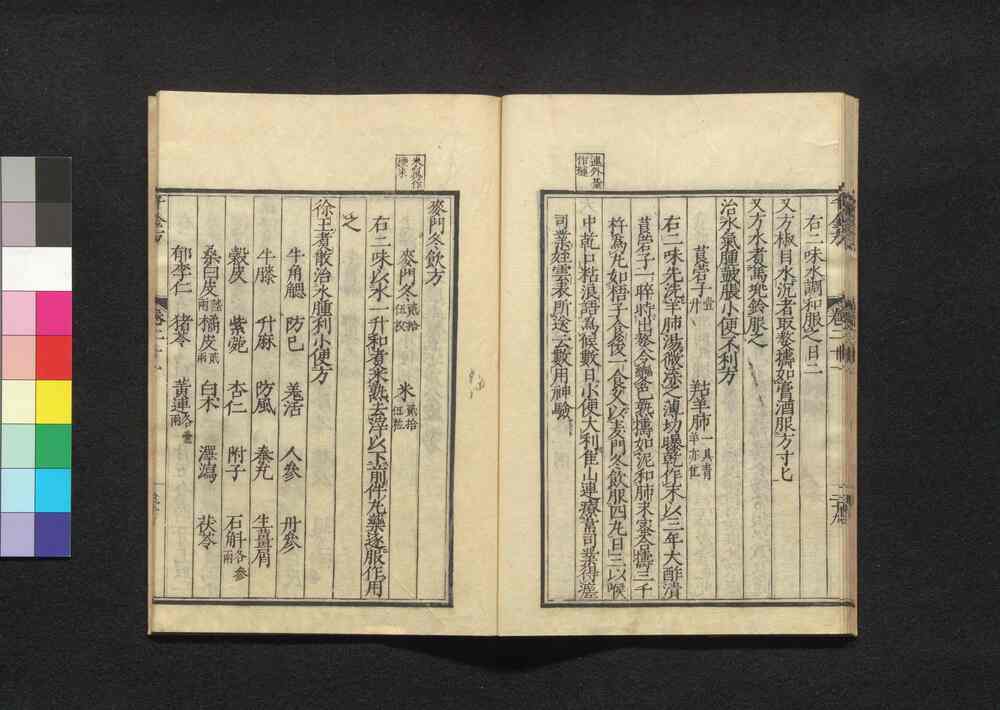 右二味水調和服之日二
又方椒目水沉者取熬擣如膏酒服方寸匕
又方水煮馬兜鈴服之
治水氣腫鼓脹小便不利方
莨菪子壹升 羖羊肺一具青羊亦佳
右二味先洗羊肺湯微煠之薄切曝乾作末以三年大酢漬
莨菪子一晬時出熬令變色熟擣如泥和肺末蜜合擣三千
杵為丸如梧子食後一食久以麦門冬飲服四丸日三以喉
中乾口粘浪語為候數日小便大利佳山連療韋司業得瘥
司業姪雲表所送云數用神驗
麥門冬飲方
麥門冬貳拾伍枚 米貳拾伍粒
右二味以水一升和煮米熟去滓以下前件丸藥逐服作用
之
徐王煮散治水腫利小便方
牛角䚡 防已 羌活 人參 丹參
牛膝 升麻 防風 秦艽 生薑屑
穀皮 紫菀 杏仁 附子 石斛各參兩
桑白皮陸兩 橘皮貳兩 白术 澤瀉 茯苓
郁李仁 猪苓 黃連各壹兩